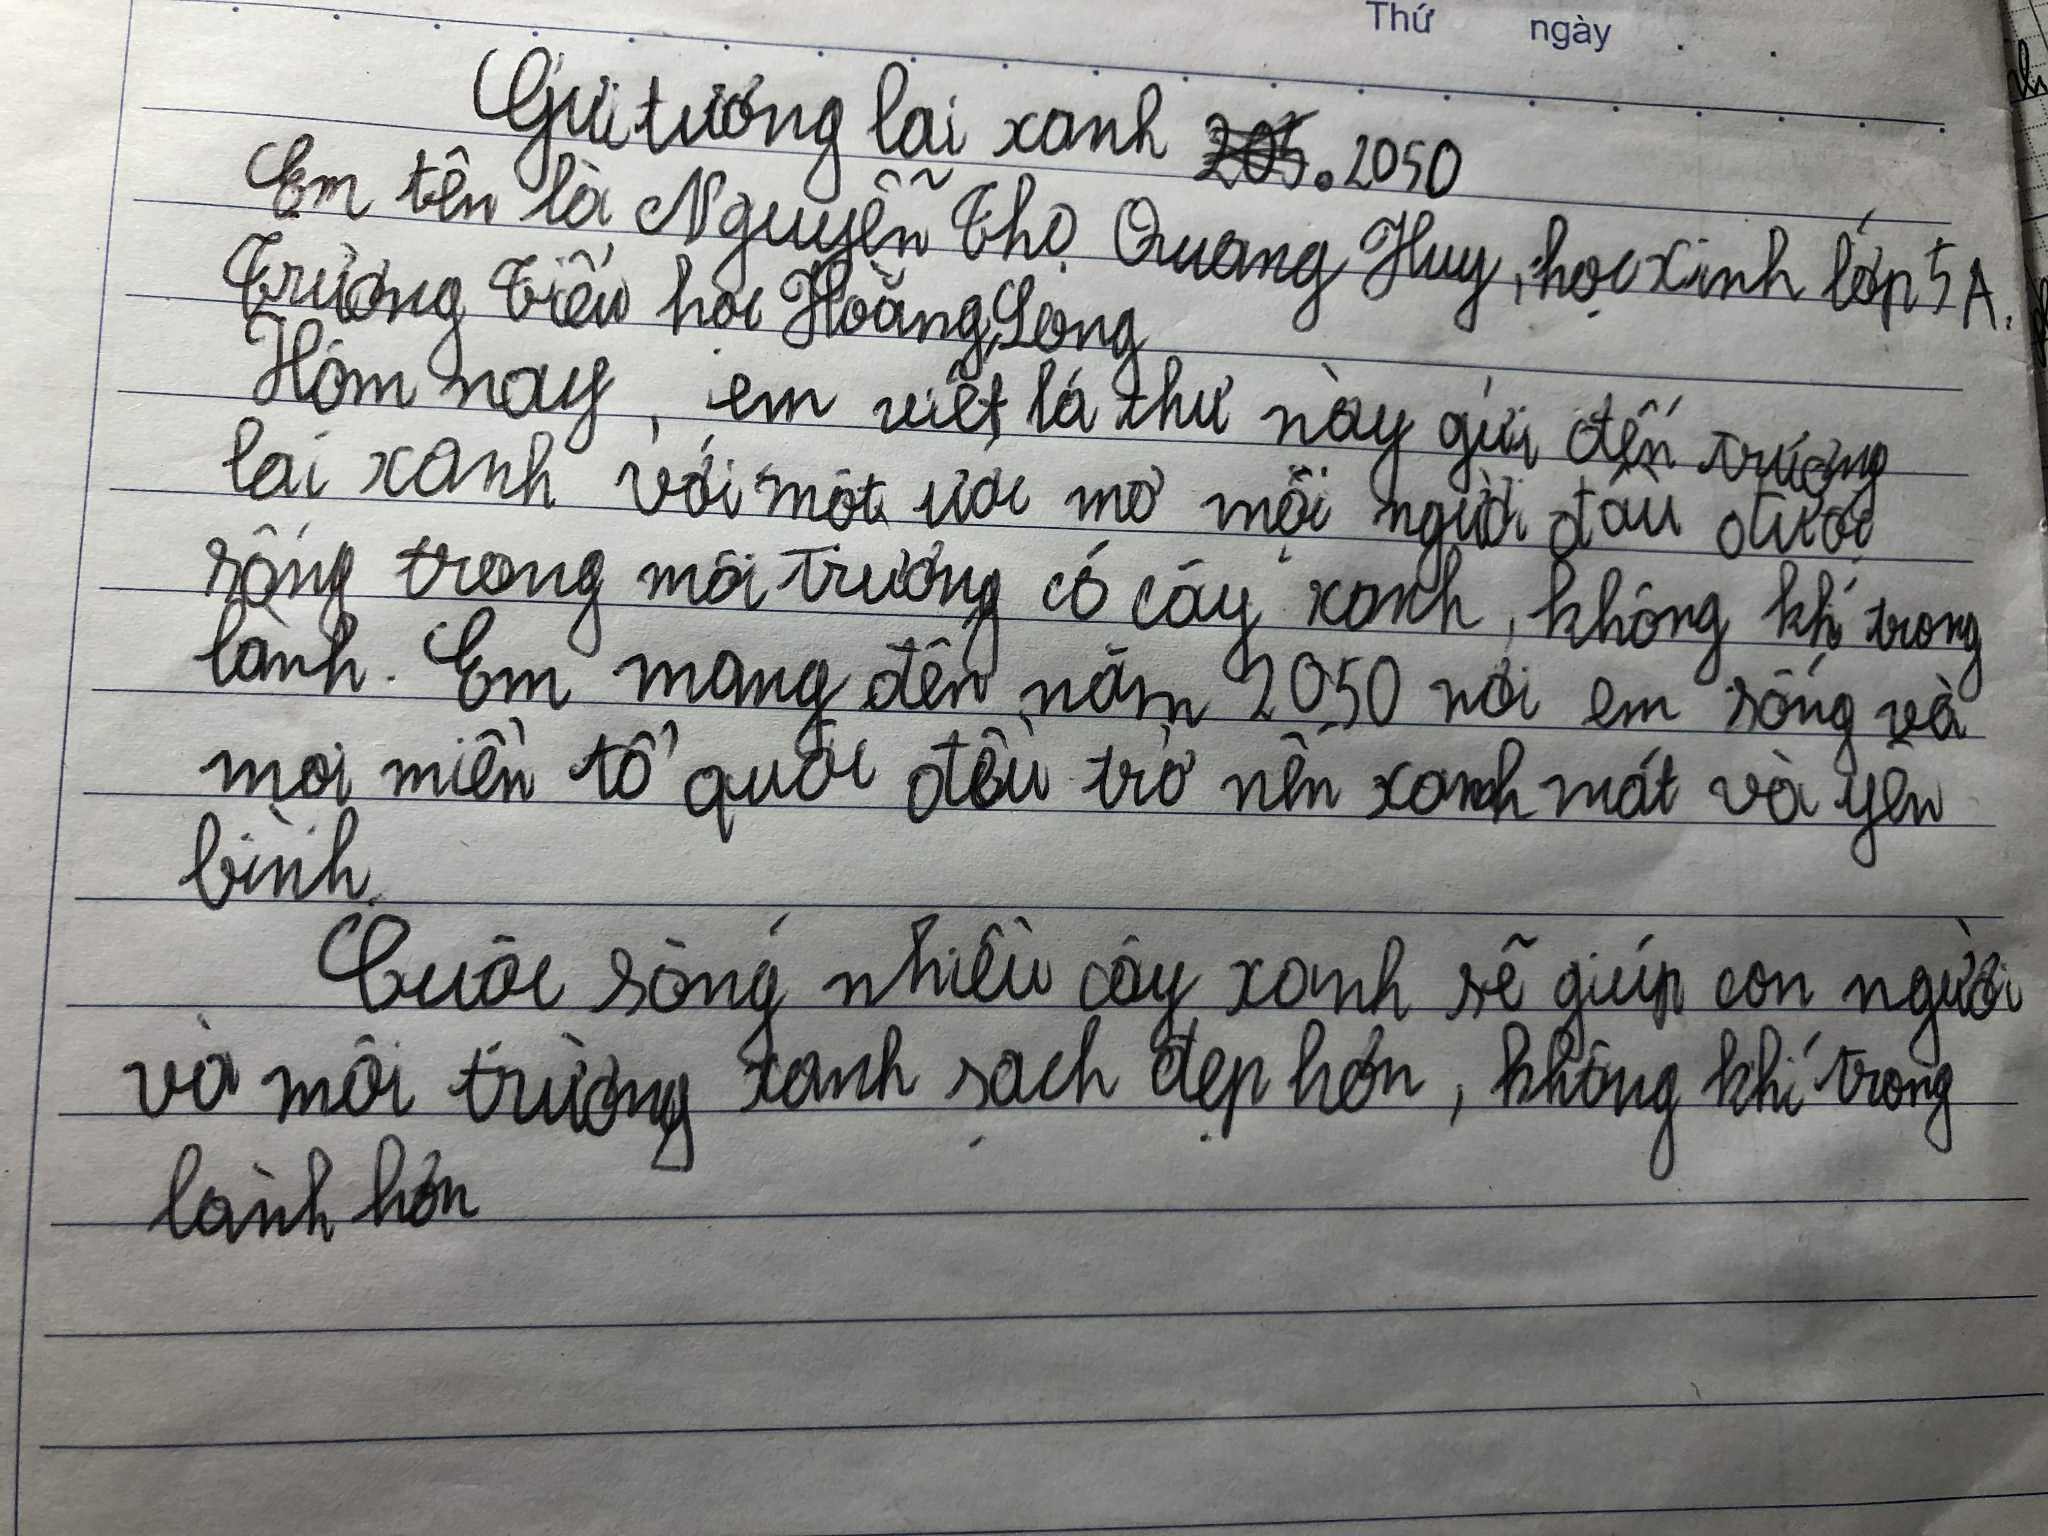 Thứ ngày
Gửi tương lai xanh 205.2050
Em tên là Nguyễn Thọ Quang Huy, học xinh lớp 5A.
Trường Tiểu hoc Hoằng Long
Hôm nay, em viết lá thư này gửi đến trương
lai xanh với một ước mơ mỗi người đều được
sống trong môi trương có cây xanh, không khí trong
lành. Em mong đến năm 2050 nơi em sống và
mọi miền tổ quốc đều trở nên xanh mát và yên
bình.
Cuôc sống nhiều cây xanh sẽ giúp con người
và môi trường xanh sạch đẹp hơn, không khí trong
lành hơn